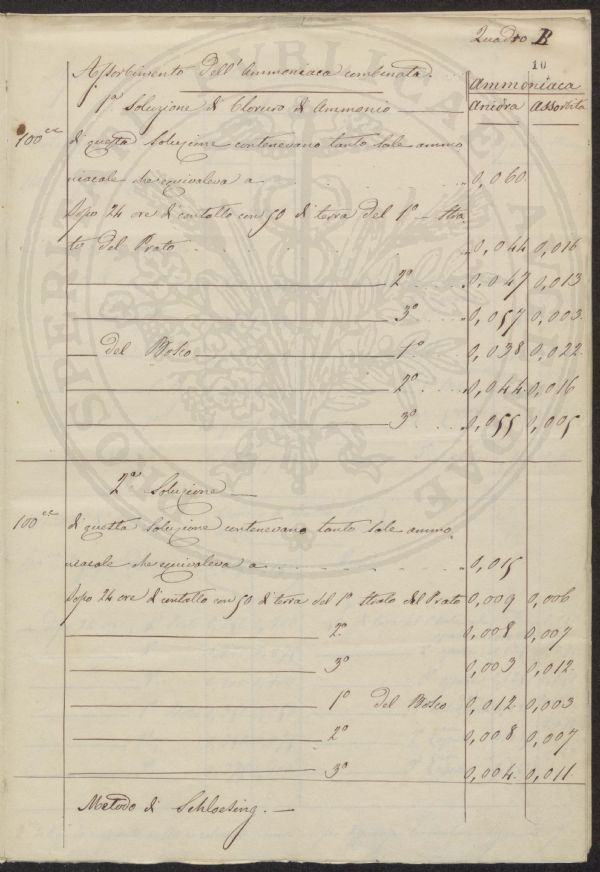 Quadro B
10
Assorbimento dell'Ammoniaca combinata.
Ammoniaca
1ª Soluzione di Cloruro di Ammonio
Ancora Assorbita
100 cc di questa Soluzione contenevano tanto sale ammo
niacale che equivaleva a . . . . 0,060
Dopo 24 ore di contatto con 50 di terra del 1º Stra
to del Prato . . . . 0,044 0,016
2º . . . . 0,047 0,013
3º . . . . 0,057 0,003
del Bosco 1º 0,038 0,022
2º . . . . 0,044 0,016
3º . . . . 0,055 0,005
2ª Soluzione
100 cc di questa soluzione contenevano tanto sale ammo
niacale che equivaleva a . . . . 0,015
Dopo 24 ore di contatto con 50 di terra del 1º Strato del Prato 0,009 0,006
2º 0,008 0,007
3º 0,003 0,012
1º del Bosco 0,012 0,003
2º 0,008 0,007
3º 0,004 0,011
Metodo di Schloesing. —